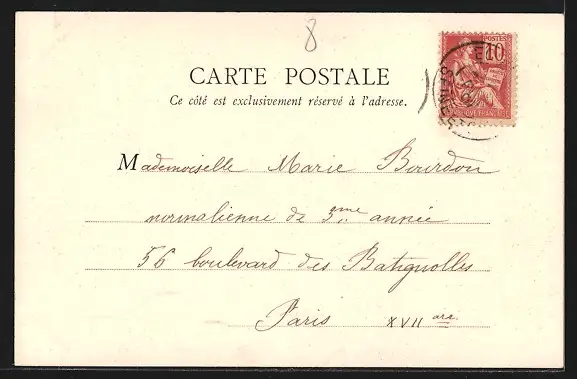 8
CARTE POSTALE
Ce côté est exclusivement réservé à l'adresse.
POSTES
10
Mademoiselle Marie Bourdon
normalienne de 3eme année
56 boulevard des Batignolles
Paris XVII arr.